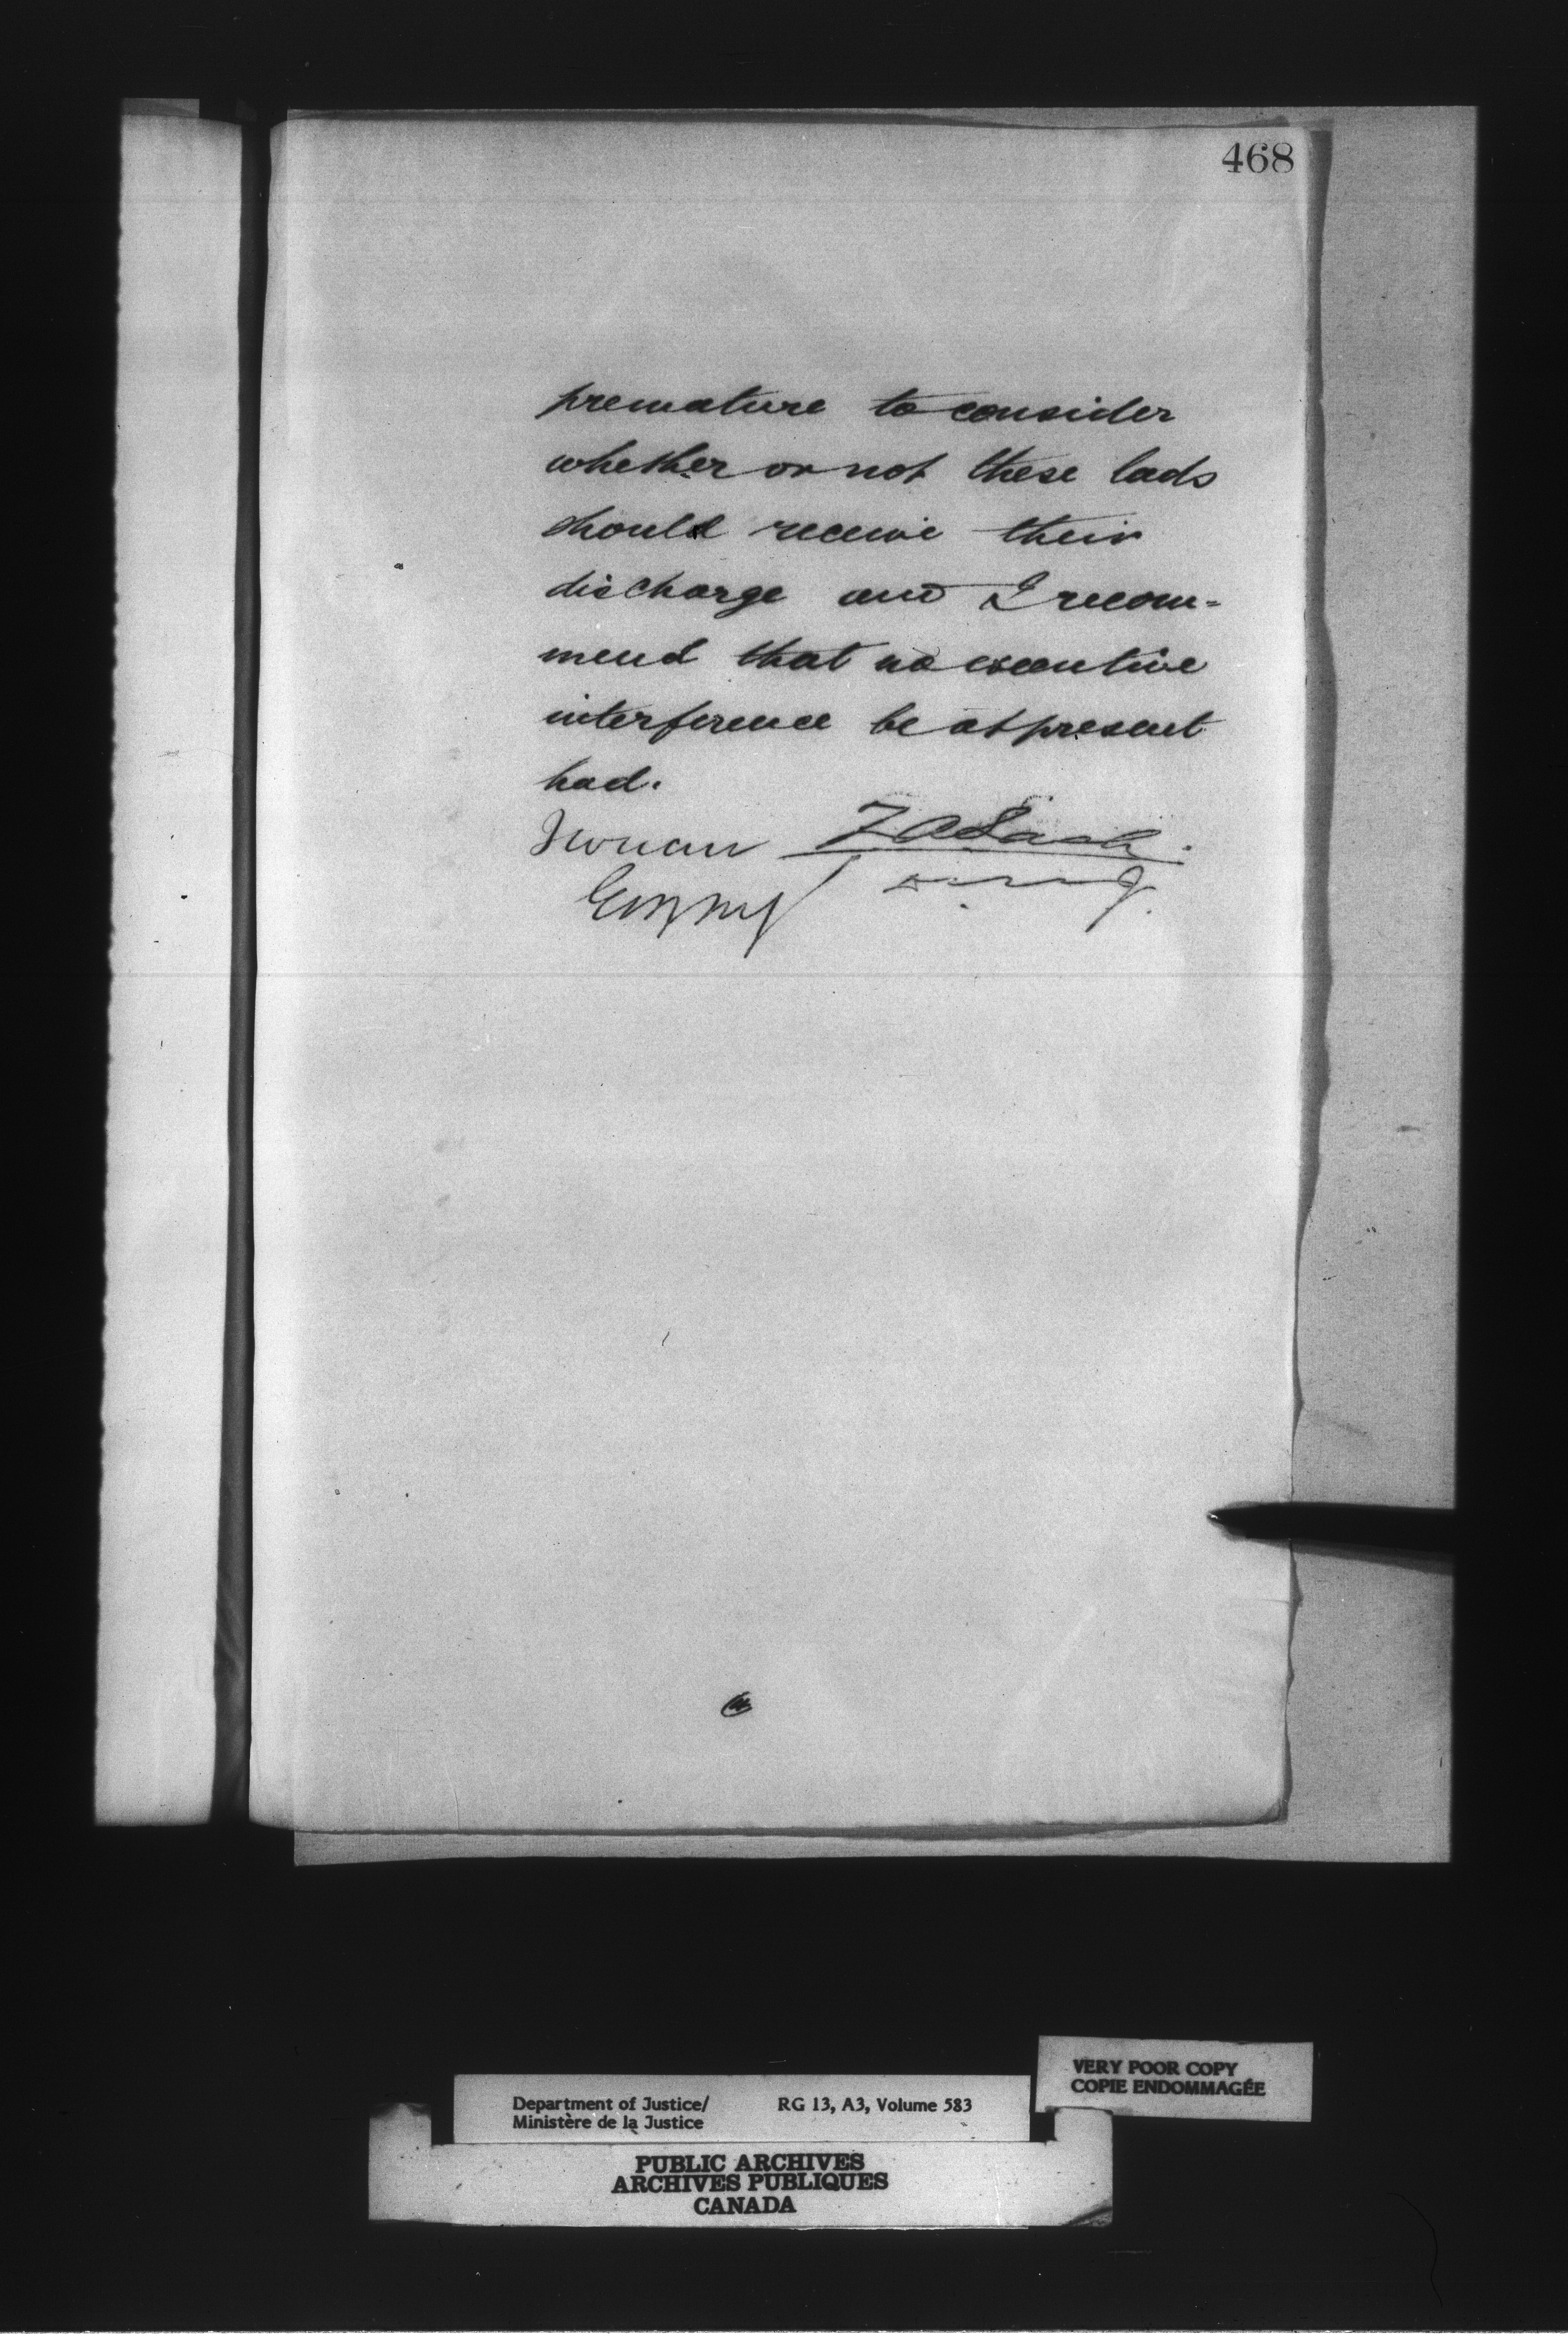 468
premature to consider
whether or not these lads
should receive their
discharge and I recom-
mend that no executive
interference be at present
had.
I concur Z A Lash
VERY POOR COPY
COPIE ENDOMMAGÉE
Department of Justice/ RG 13, A3, Volume 583
Ministère de la Justice
PUBLIC ARCHIVES
ARCHIVES PUBLIQUES
CANADA